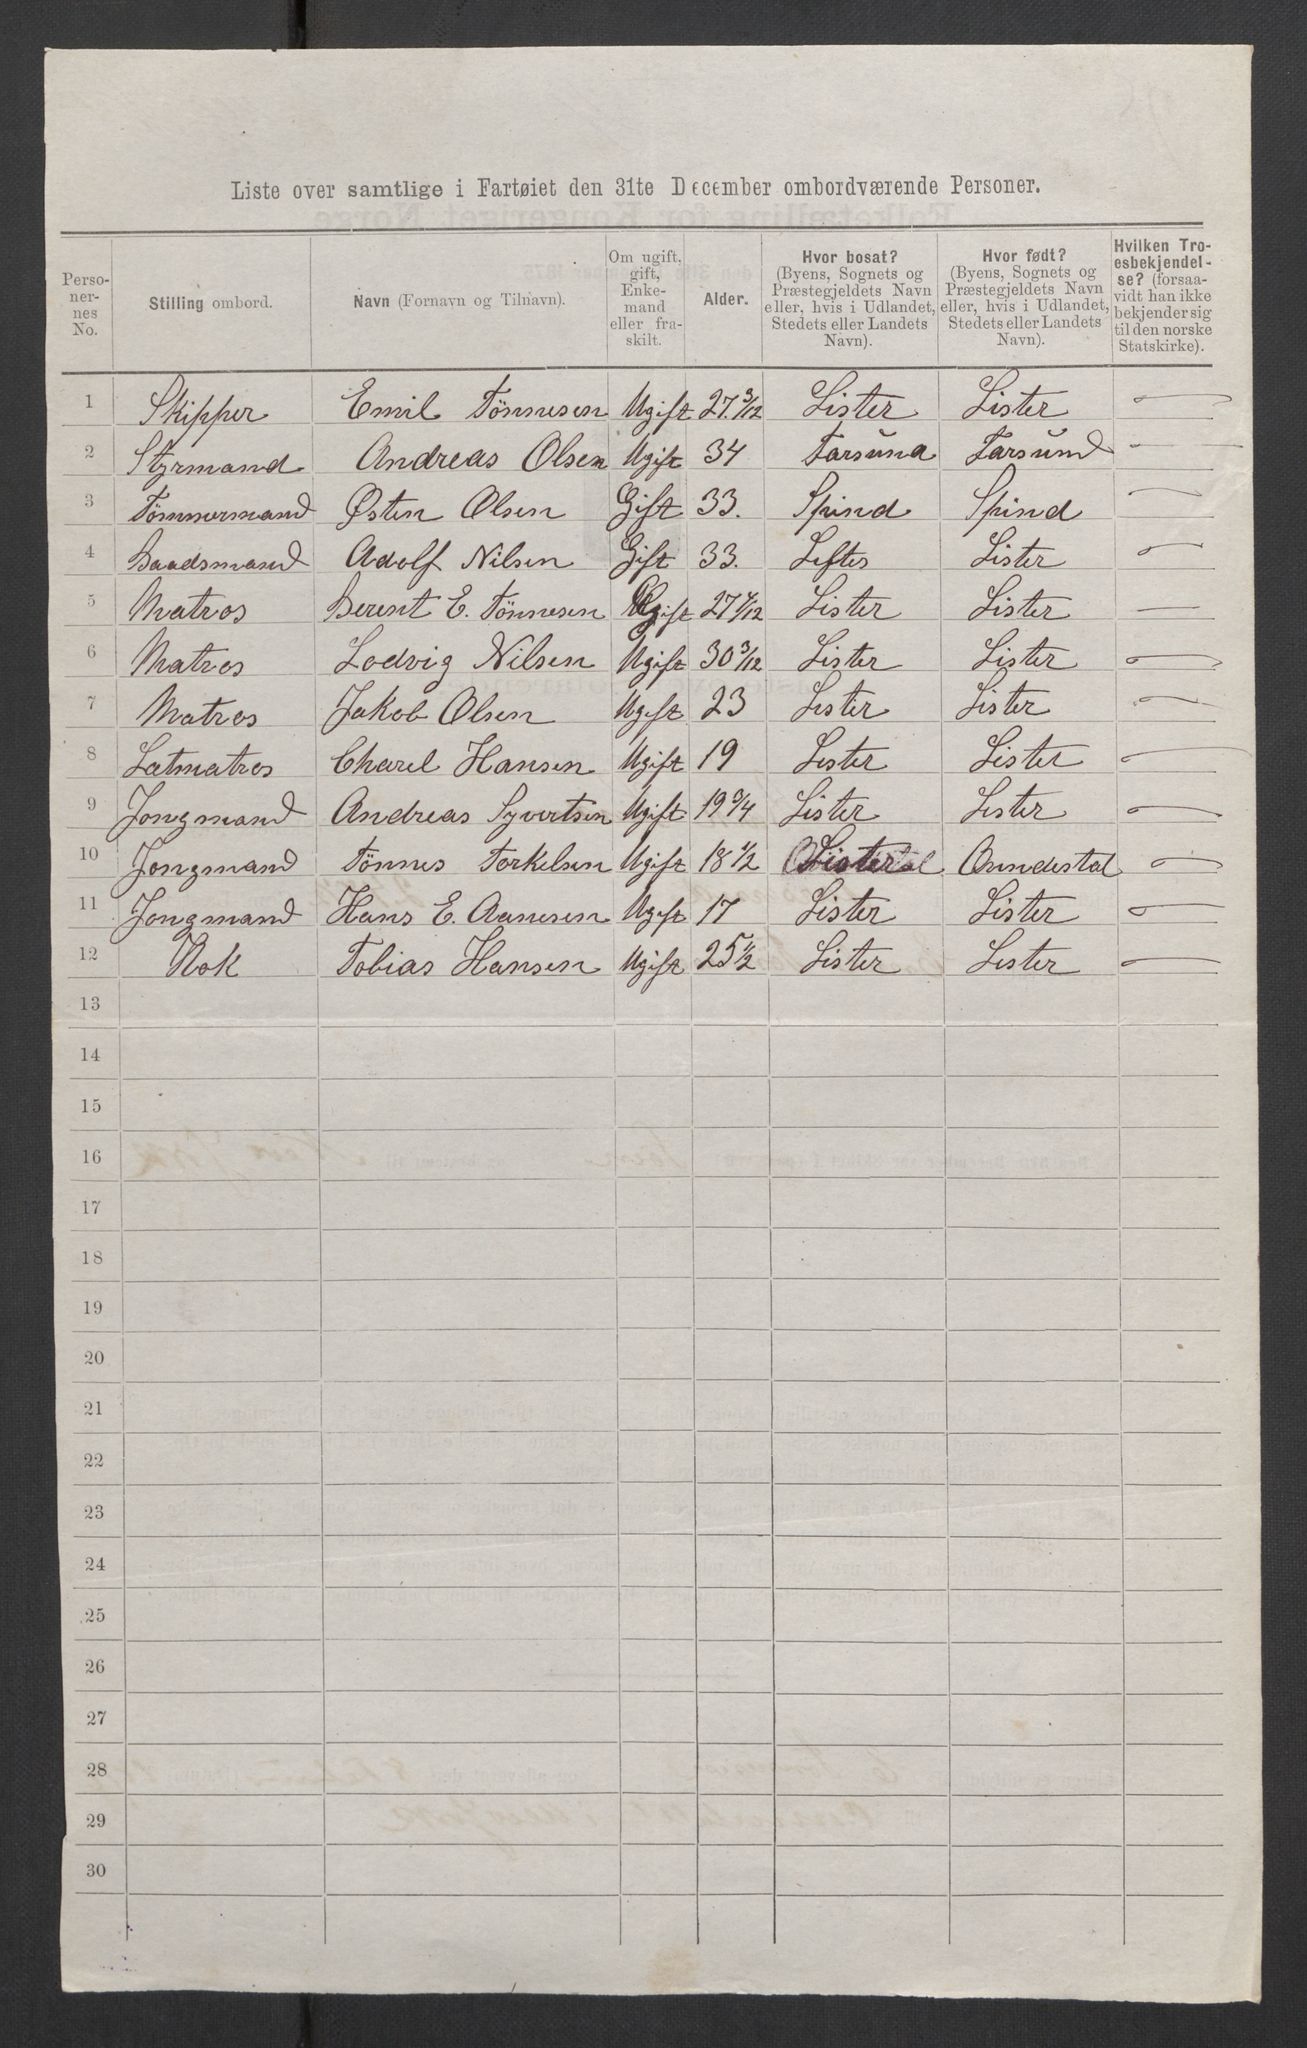 Liste over samtlige i Fartøiet den 31te December ombordværende Personer.
Perso-
ner-
nes
No.
Stilling ombord.
Navn (Fornavn og Tilnavn).
Om ugift,
gift,
Enke-
mand
eller fra-
skilt.
Alder.
Hvor bosat?
(Byens, Sognets og
Præstegjeldets Navn
eller, hvis i Udlandet,
Stedets eller Landets
Navn).
Hvor født?
(Byens, Sognets og
Præstegjeldets Navn
eller, hvis i Udlandet,
Stedets eller Landets
Navn).
Hvilken Tro-
esbekjendel-
se? (forsaa-
vidt han ikke
bekjender sig
til den norske
Statskirke).
1 Skipper Emil Tönnesen Ugift 27 3/12 Lister Lister —
2 Styrmand Andreas Olsen Ugift 34 Farsund Farsund —
3 Tömmermand Østen Olsen Gift 33. Spind Spind —
4 Baadsmand Adolf Nilsen Gift 33. Lister —
5 Matros Berent E. Tönnesen Ugift 27 4/12 Lister Lister —
6 Matros Lodvig Nilsen Ugift 30 3/12 Lister Lister —
7 Matros Jakob Olsen Ugift 23 Lister Lister —
8 Letmatros Charel Hansen Ugift 19 Lister Lister —
9 Jongmand Andreas Syvertsen Ugift 19 3/4 Lister Lister —
10 Jongmand Tönnes Torkelsen Ugift 18 1/2 Lister —
11 Jongmand Hans E. Aanesen Ugift 17 Lister Lister —
12 Kok Tobias Hansen Ugift 25 1/2 Lister Lister —
13
14
15
16
17
18
19
20
21
22
23
24
25
26
27
28
29
30